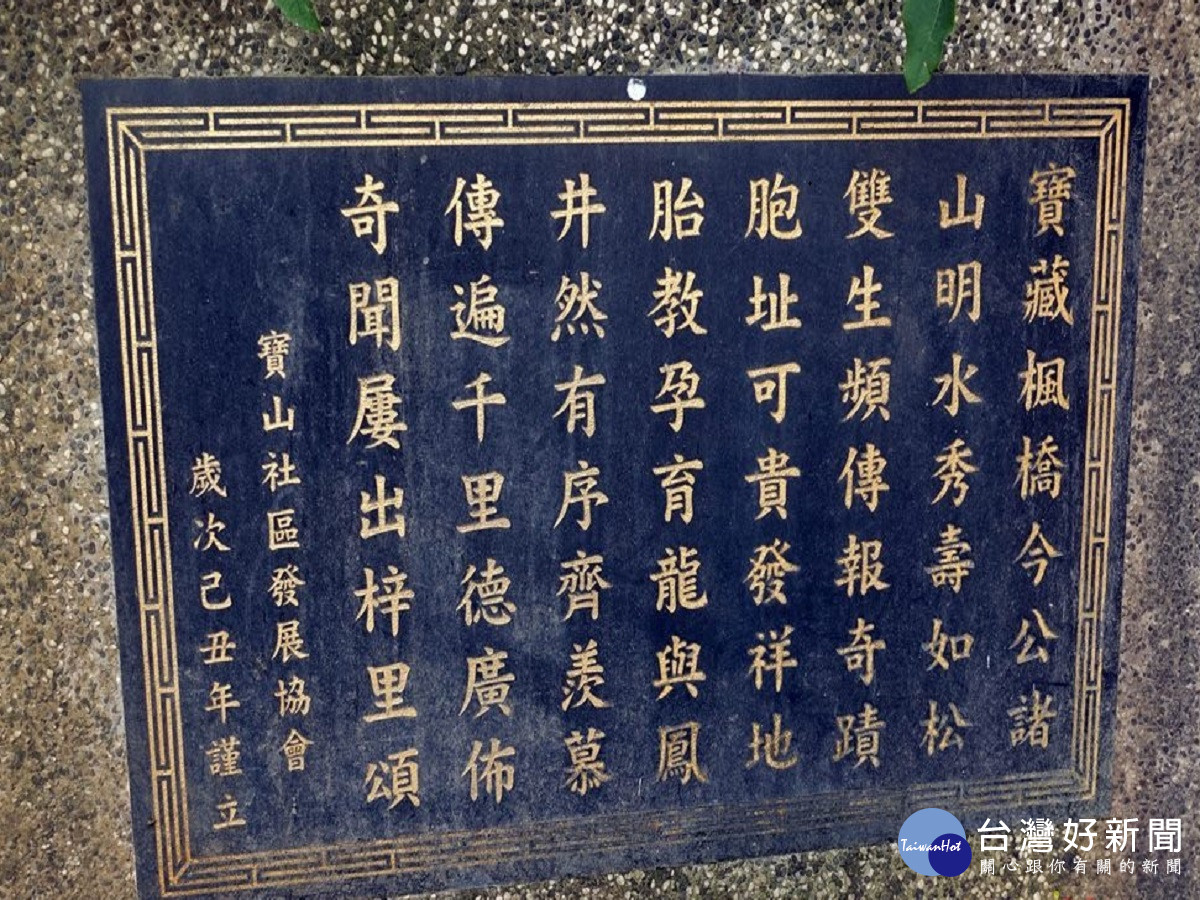 寶藏楓橋今公諸
山明水秀壽如松
雙生頻傳報奇蹟
胞址可貴發祥地
胎教孕育龍與鳳
井然有序齊羨慕
傳遍千里德廣佈
奇聞屢出梓里頌
寶山社區發展協會
歲次己丑年謹立
TaiwanHot
台灣好新聞
關心跟你有關的新聞